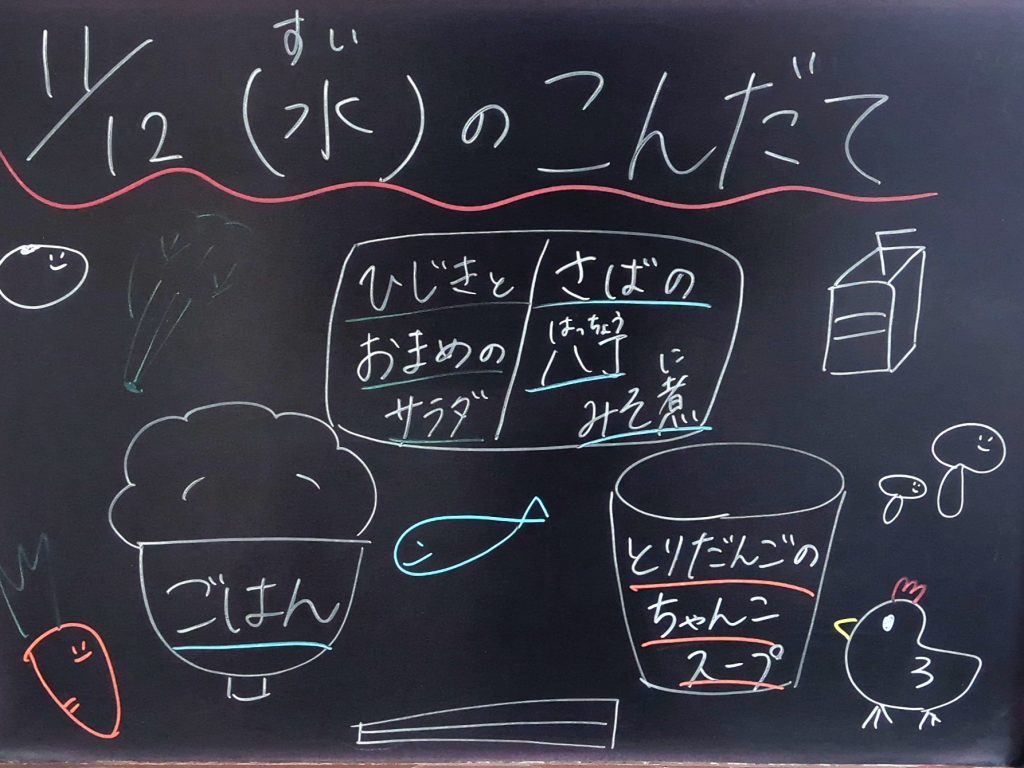 11/12 (水)のこんだて
すい
ひじきと
おまめの
サラダ
さばの
はっちょう
八丁
に
みそ煮
ごはん
とりだんごの
ちゃんこ
スープ